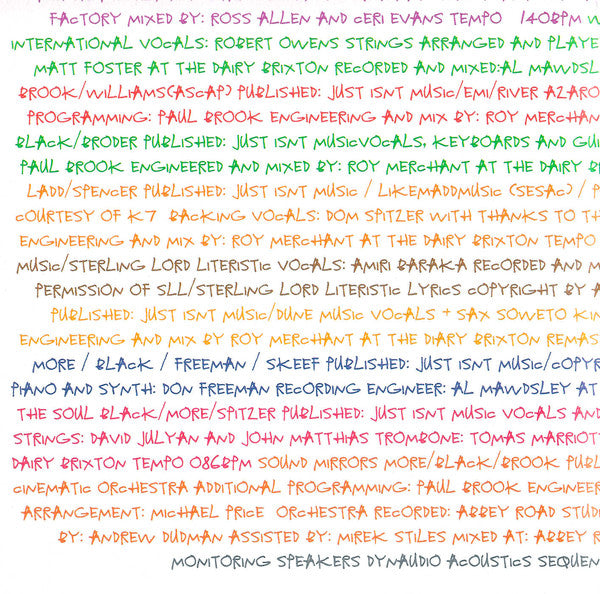 FACTORY MIXED BY: ROSS ALLEN AND CERI EVANS TEMPO 140BPM W
INTERNATIONAL VOCALS: ROBERT OWENS STRINGS ARRANGED AND PLAYE
MATT FOSTER AT THE DAIRY BRIXTON RECORDED AND MIXED:AL MAWDSL
BROOK/WILLIAMS(ASCAP) PUBLISHED: JUST ISNT MUSIC/EMI/RIVER AZARO
PROGRAMMING: PAUL BROOK ENGINEERING AND MIX BY: ROY MERCHAN
BLACK/BRODER PUBLISHED: JUST ISNT MUSICVOCALS, KEYBOARDS AND GUI
PAUL BROOK ENGINEERED AND MIXED BY: ROY MERCHANT AT THE DAIRY B
LADD/SPENCER PUBLISHED: JUST ISNT MUSIC / LIKEMADDMUSIC (SESAC) / P
COURTESY OF K7 BACKING VOCALS: DOM SPITZER WITH THANKS TO TH
ENGINEERING AND MIX BY: ROY MERCHANT AT THE DAIRY BRIXTON TEMPO
MUSIC/STERLING LORD LITERISTIC VOCALS: AMIRI BARAKA RECORDED AND M
PERMISSION OF SLL/STERLING LORD LITERISTIC LYRICS COPYRIGHT BY A
PUBLISHED: JUST ISNT MUSIC/DUNE MUSIC VOCALS + SAX SOWETO KIN
ENGINEERING AND MIX BY ROY MERCHANT AT THE DAIRY BRIXTON REMAS
MORE / BLACK / FREEMAN / SKEEF PUBLISHED: JUST ISNT MUSIC/COPYR
PIANO AND SYNTH: DON FREEMAN RECORDING ENGINEER: AL MAWDSLEY AT
THE SOUL BLACK/MORE/SPITZER PUBLISHED: JUST ISNT MUSIC VOCALS AND
STRINGS: DAVID JULYAN AND JOHN MATTHIAS TROMBONE: TOMAS MARRIOTT
DAIRY BRIXTON TEMPO 086BPM SOUND MIRRORS MORE/BLACK/BROOK PUBL
CINEMATIC ORCHESTRA ADDITIONAL PROGRAMMING: PAUL BROOK ENGINEER
ARRANGEMENT: MICHAEL PRICE ORCHESTRA RECORDED: ABBEY ROAD STUD
BY: ANDREW DUDMAN ASSISTED BY: MIREK STILES MIXED AT: ABBEY R
MONITORING SPEAKERS DYNAUDIO ACOUSTICS SEQUEN